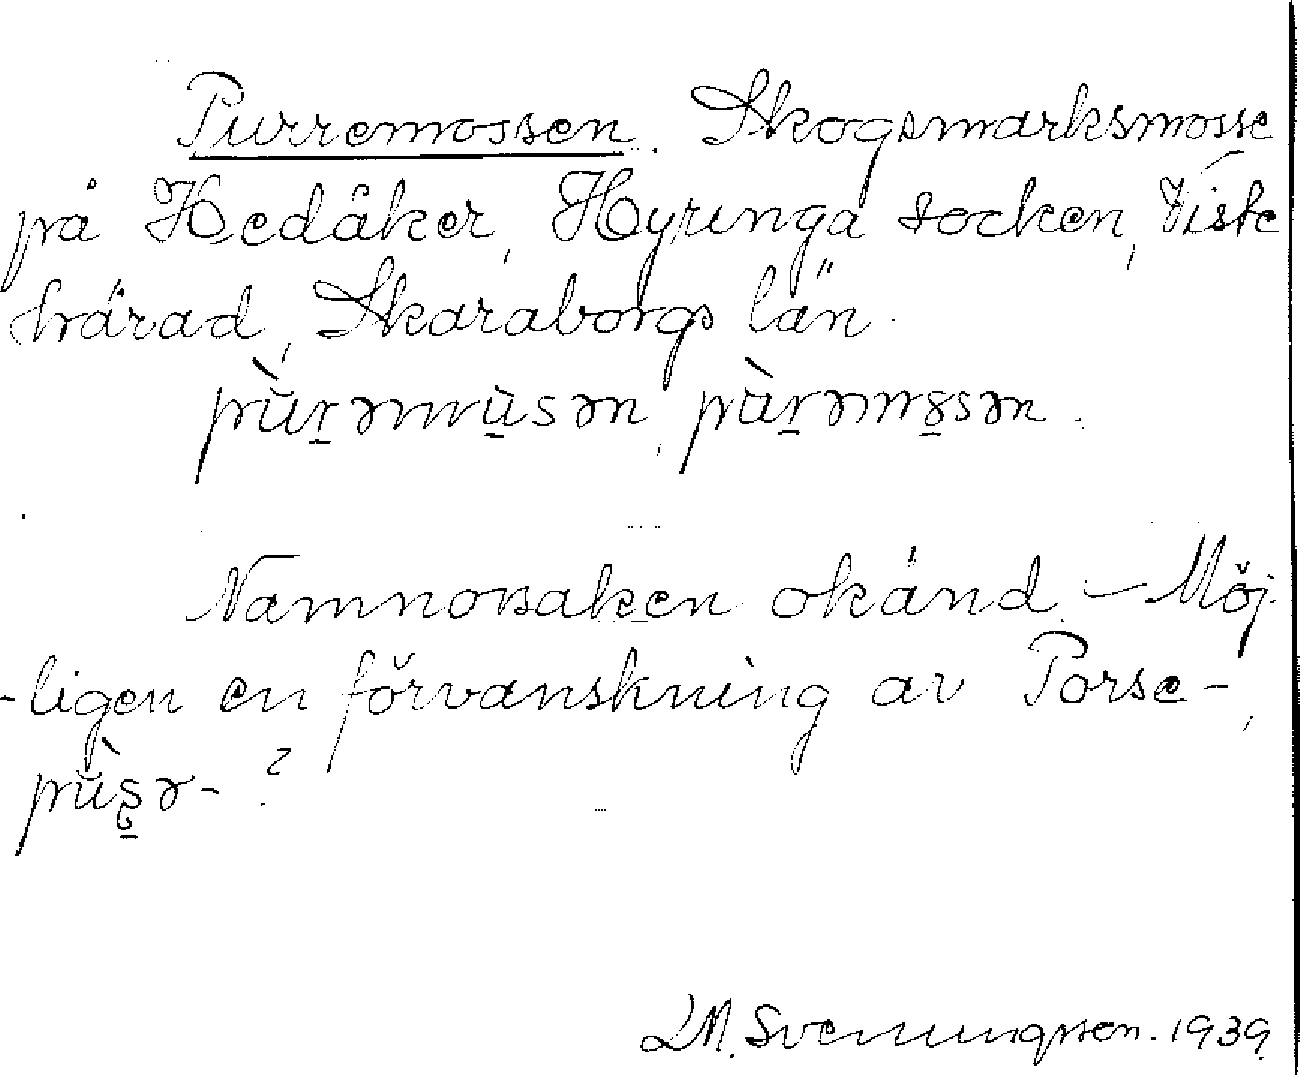 Purremossen. Skogsmarksmosse
på Hedåker, Hyringa socken, Viste
härad, Skaraborgs län.
pùrəmùsən, pùrəmo̤sən.
Namnorsaken okänd. – Möj-
-ligen en förvanskning av Porse-,
pùs̤ə- ?
LM. Svenungsson. 1939.